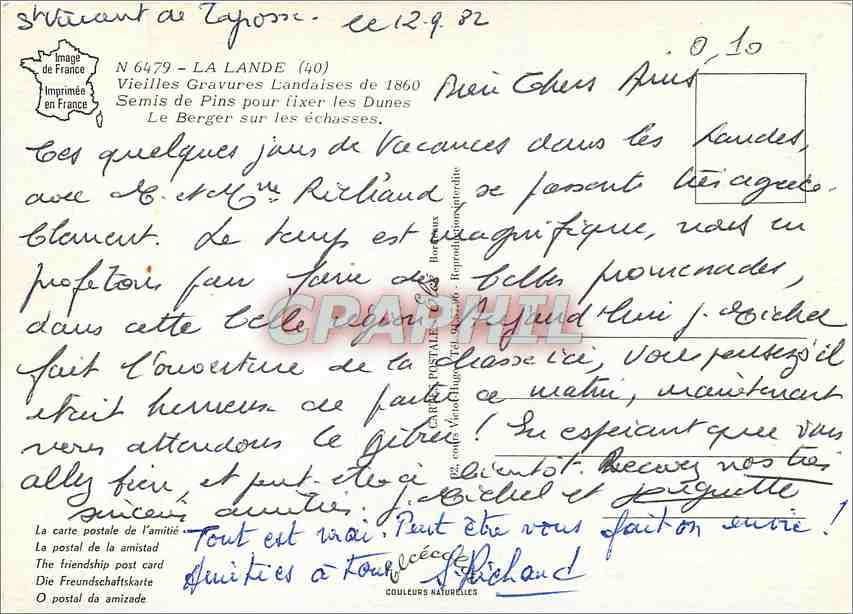 St Vincent de Tyrosse. le 12.9.82
0,10
Image
de France
Imprimée
en France
N 6479 - LA LANDE (40)
Vieilles Gravures Landaises de 1860
Semis de Pins pour fixer les Dunes
Le Berger sur les échasses.
Bien Chers Amis
Ces quelques jours de Vacances dans les Landes,
avec M. et Mme Richaud, se passent très agréa-
blement. Le temps est magnifique, nous en
profitons pour faire de belles promenades,
dans cette belle région. Aujourd'hui J. Michel
fait l'ouverture de la chasse ici, vous pensez s'il
était heureux de partir ce matin, maintenant
nous attendons le gibier ! En espérant que vous
allez bien et peut-être à bientôt. Recevez nos très
sincères amitiés. J. Michel et Huguette
Tout est vrai. Peut être vous fait on envie !
Amitiés à tous S. Richaud
CARTES POSTALES Elcé Bordeaux
92, cours Victor-Hugo - Tél. - Reproduction interdite
CPARPHIL
La carte postale de l'amitié
La postal de la amistad
The friendship post card
Die Freundschaftskarte
O postal da amizade
COULEURS NATURELLES